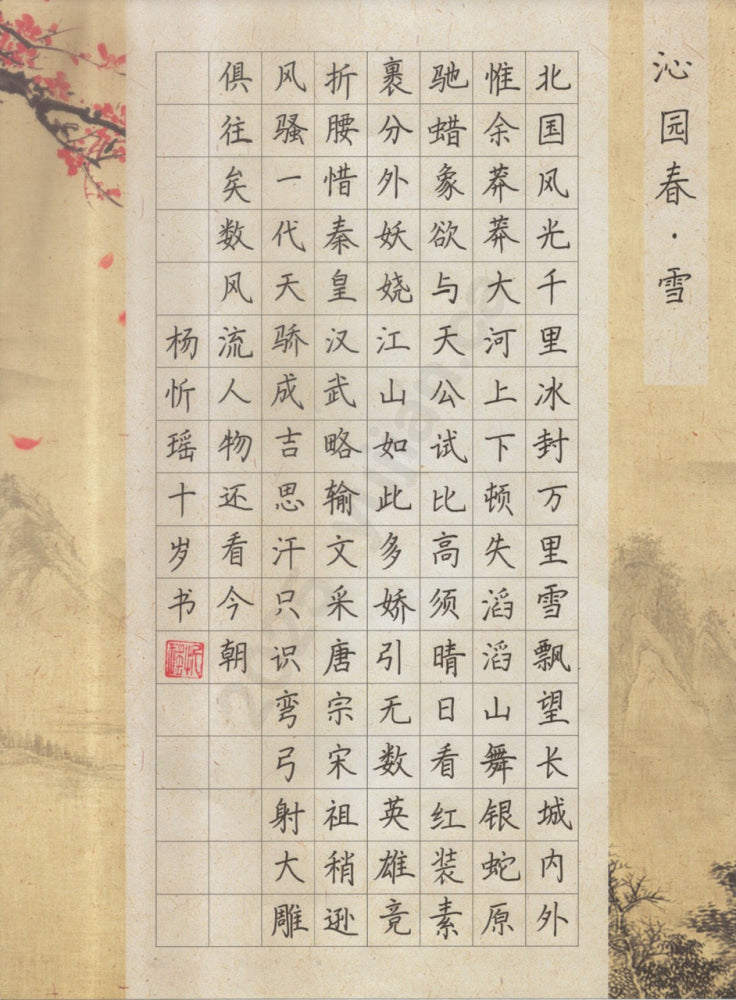 沁园春·雪
北国风光千里冰封万里雪飘望长城内外
惟余莽莽大河上下顿失滔滔山舞银蛇原
驰蜡象欲与天公试比高须晴日看红装素
裹分外妖娆江山如此多娇引无数英雄竞
折腰惜秦皇汉武略输文采唐宗宋祖稍逊
风骚一代天骄成吉思汗只识弯弓射大雕
俱往矣数风流人物还看今朝
杨忻瑶十岁书